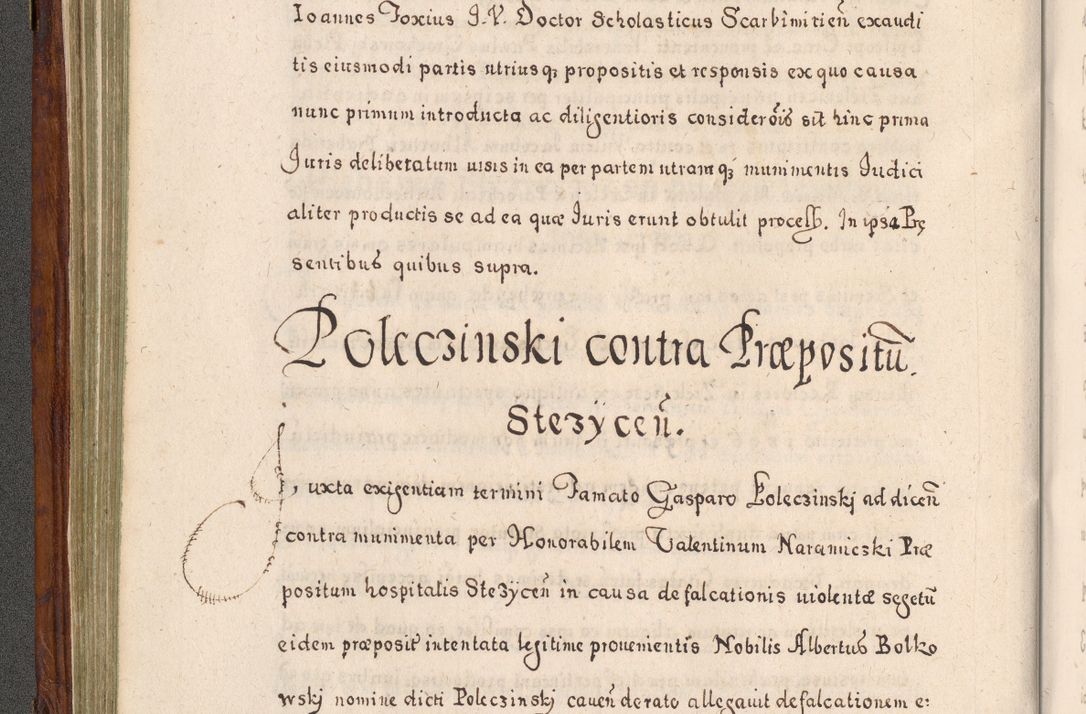 Ioannes Foxius I. V. Doctor Scholasticus Scarbimirien̄ exaudi
tis eiusmodi partis utriusqꝫ propositis et responsis ex quo causa
nunc primum introducta ac diligentioris considerōis sit hinc prima
Iuris deliberatum uisis in ea per partem utramqꝫ munimentis Iudici
aliter productis se ad ea quæ Iuris erunt obtulit process. In ipsa Prę
sentibus quibus supra.
Poleczinski contra Præpositū.
Stezÿcen̄.
Iuxta exigentiam termini Famato Gasparo Poleczinskj ad dicen̄
contra munimenta per Honorabilem Valentinum Naramiczki Præ
positum hospitalis Stezÿcen̄ in causa defalcationis uiolentæ segetū
eidem præposit intentata legitime prouenientis Nobilis Albertus Bolko
wskj nomine dicti Poleczinskj cauen̄ de rato allegauit defalcationem e: